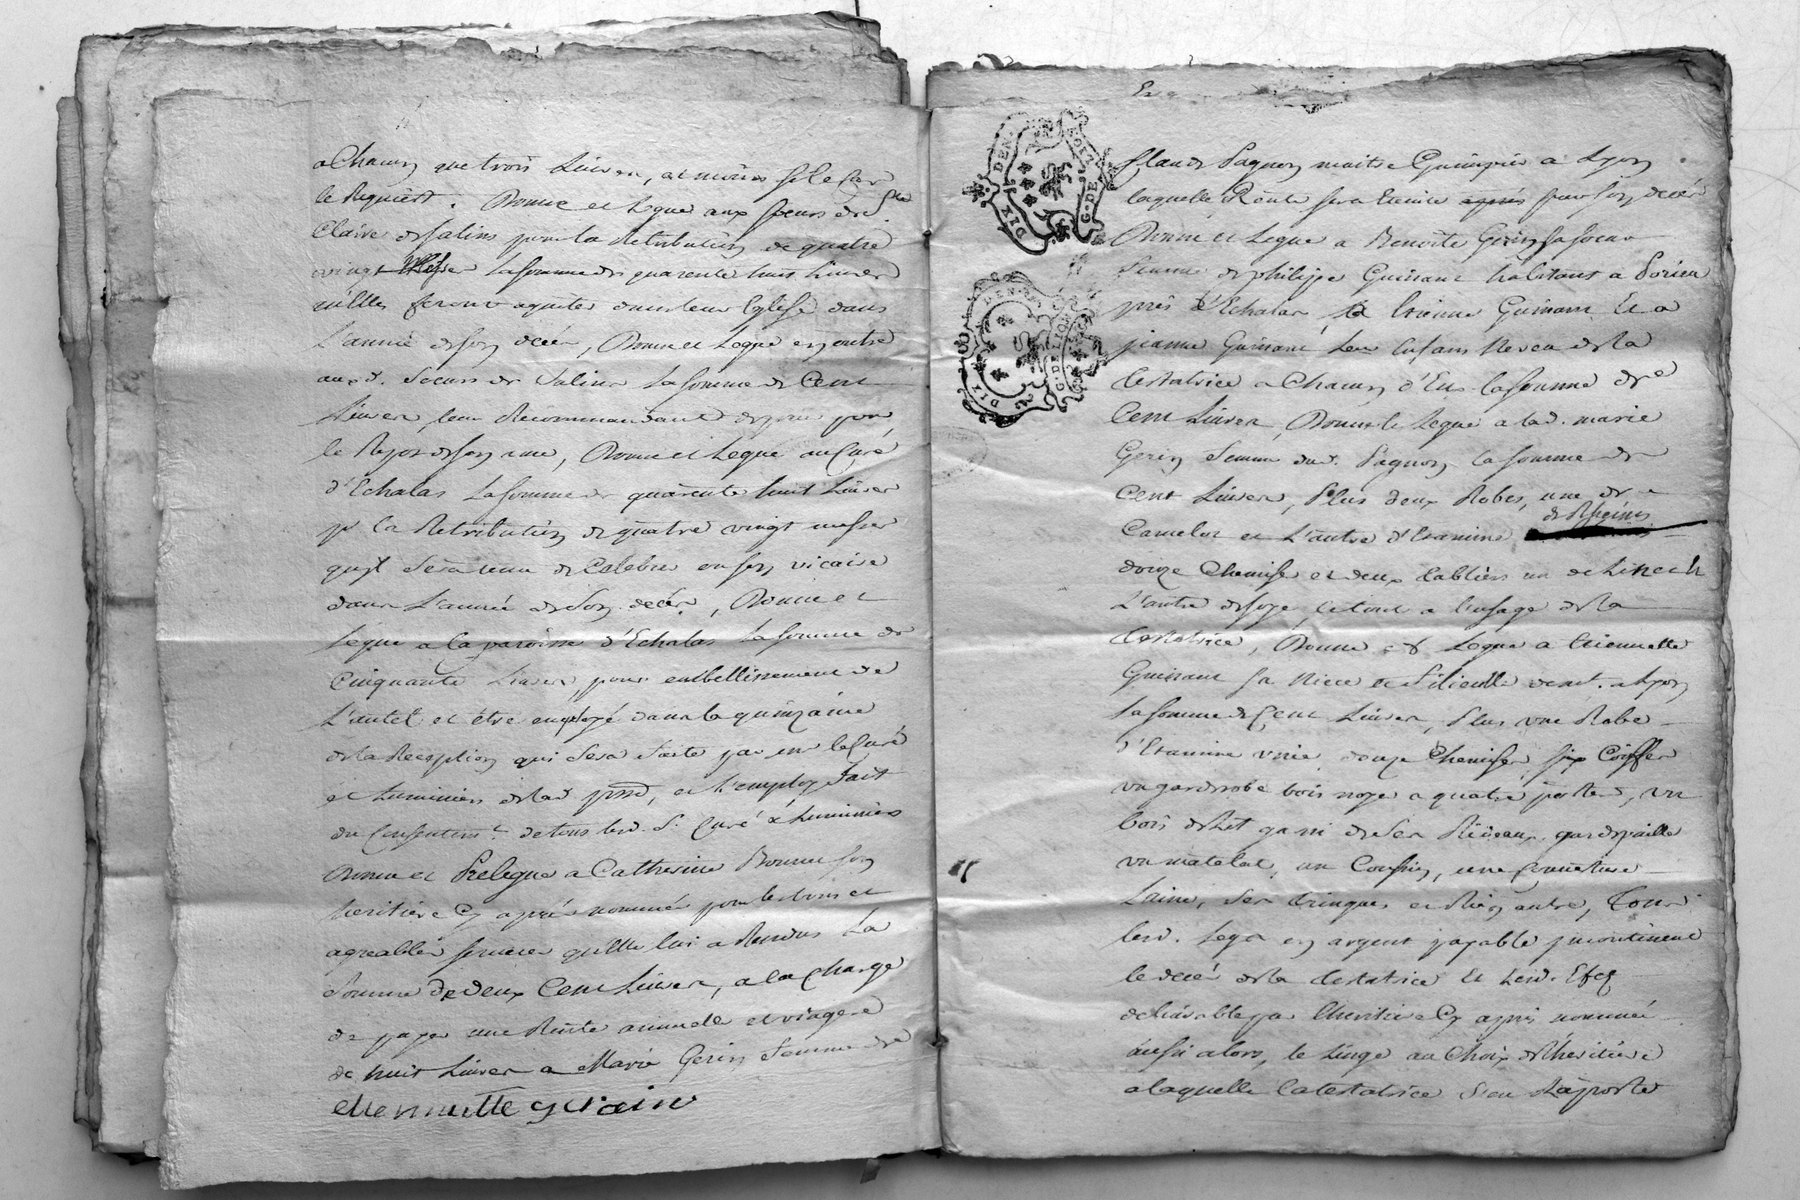 a Chacun que trois Livres, a moins si le Cas
le Requiert. Donne et Legue aux soeurs de Ste
Claire de Salins pour la Retribution de quatre
vingt Messes La somme de quarente huit Livres
qu'elles feront aquiter dans leur Eglise dans
L'année de son decés, Donne et Legue en outre
aux d. soeurs de Salins La somme de Cent
Livres leur Recommandant de prier pour
le Repos de son ame, Donne et Legue au Curé
d'Echalas La somme de quarente huit Livres
pr la Retribution de quatre vingt messes
qu'il sera tenu de Celebrer ou son vicaire
dans L'année de son decés, Donne et
Legue a la paroisse d'Echalas La somme de
Cinquante Livres pour embellissement de
L'autel et être employé dans la quinzaine
de la Reception qui sera faite par en le Curé
et Luminiers de lad. pssse, et L'employ fait
du Consentemt de tous lesd. Sr Curé & Luminiers
Donne et Prelegue a Catherine Bonne son
heritiere Cy après nommée pour les bons et
agreables services qu'elle lui a Rendus La
Somme de deux Cent Livres, a la Charge
de payer une Rente annuelle et viagere
de huit Livres a Marie Gerin femme de
ettennette gerain
Claude Pagnon maitre Guimpier a Lyon
laquelle Rente sera Eteinte après par son decés
Donne et Legue a Benoite Gerin sa soeur
femme de philippe Guinant habitant a
près d'Echalas, a Etienne Guinant Et a
jeanne Guinant Leur Enfans Neveu de la
testatrice a Chacun d'Eux la somme de
Cent Livres, Donne & Legue a lad. marie
Gerin femme dud. Pagnon la somme de
Cent Livres, Plus deux Robes, une de
de
Camelot et L'autre d'Etamine
douze Chemises et deux tabliers un de
L'autre de soye, le tout a l'usage de la
testatrice, Donne & Legue a Etiennette
Guinant sa Niece et filieulle demt. a Lyon
La somme de Cent Livres, Plus une Robe
d'Etamine voire, douze Chemises, six Coiffes
un garderobe bois noyer a quatre portes, un
bois de Lit garni de ses Rideaux, garde paille
un matelat, un Coussin, une Couverture
Laine, ses tringues et Rien autre, Tous
lesd. Legs en argent payable incontinent
le decés de la testatrice Et Lesd. Effets
delivrable par L'heritiere Cy après nommée
aussi alors, le Linge au Choix de L'heritiere
a laquelle la testatrice s'en Raporte